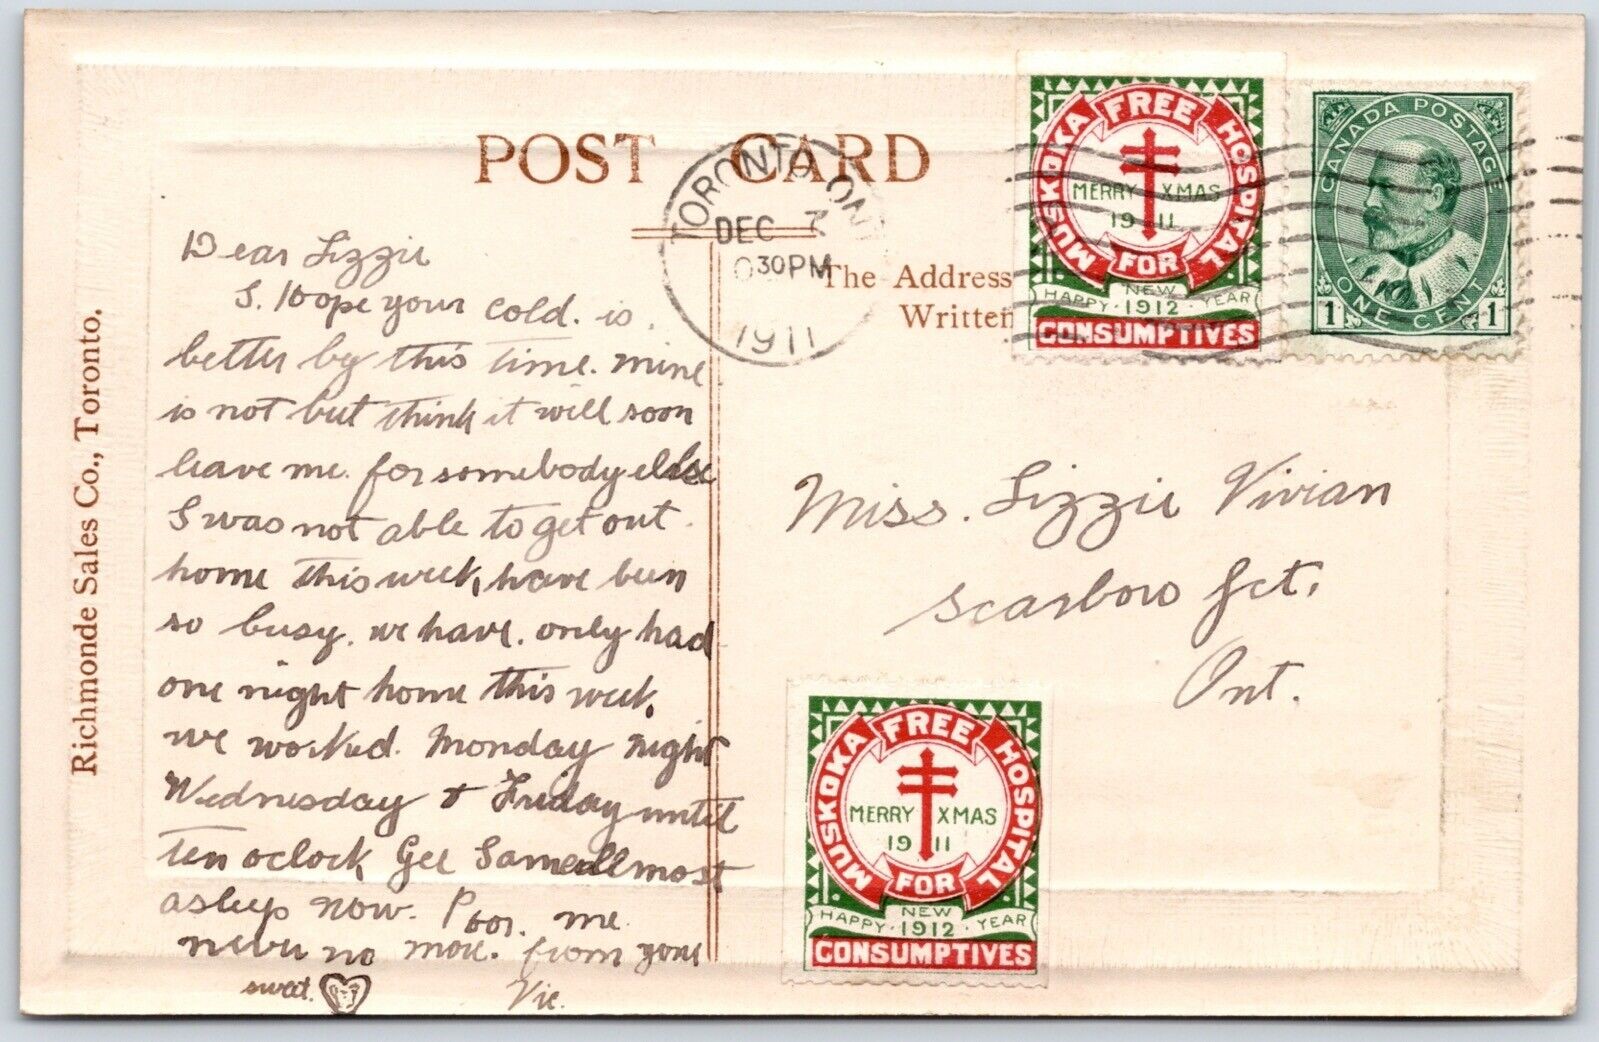 POST CARD
Richmonde Sales Co., Toronto.
Dear Lizzie
I. hope your cold. is.
better by this time. mine
is not but think it will soon
leave me. for somebody else
I was not able to get out.
home this week, have been
so busy. we have. only had
one night home this week.
we worked. Monday night
Wednesday & Friday until
ten oclock, Gee I am allmost
asleep now. Poor. me.
never no more. from your
sweet.
Vic.
TORONTO, ONT
DEC 7
30PM
1911
The Address
Written
MUSKOKA FREE HOSPITAL
MERRY XMAS
19 11
FOR
NEW
HAPPY · 1912 · YEAR
CONSUMPTIVES
CANADA POSTAGE
1 ONE CENT 1
Miss. Lizzie Vivian
Scarboro Jct.
Ont.
MUSKOKA FREE HOSPITAL
MERRY XMAS
19 11
FOR
NEW
HAPPY · 1912 · YEAR
CONSUMPTIVES